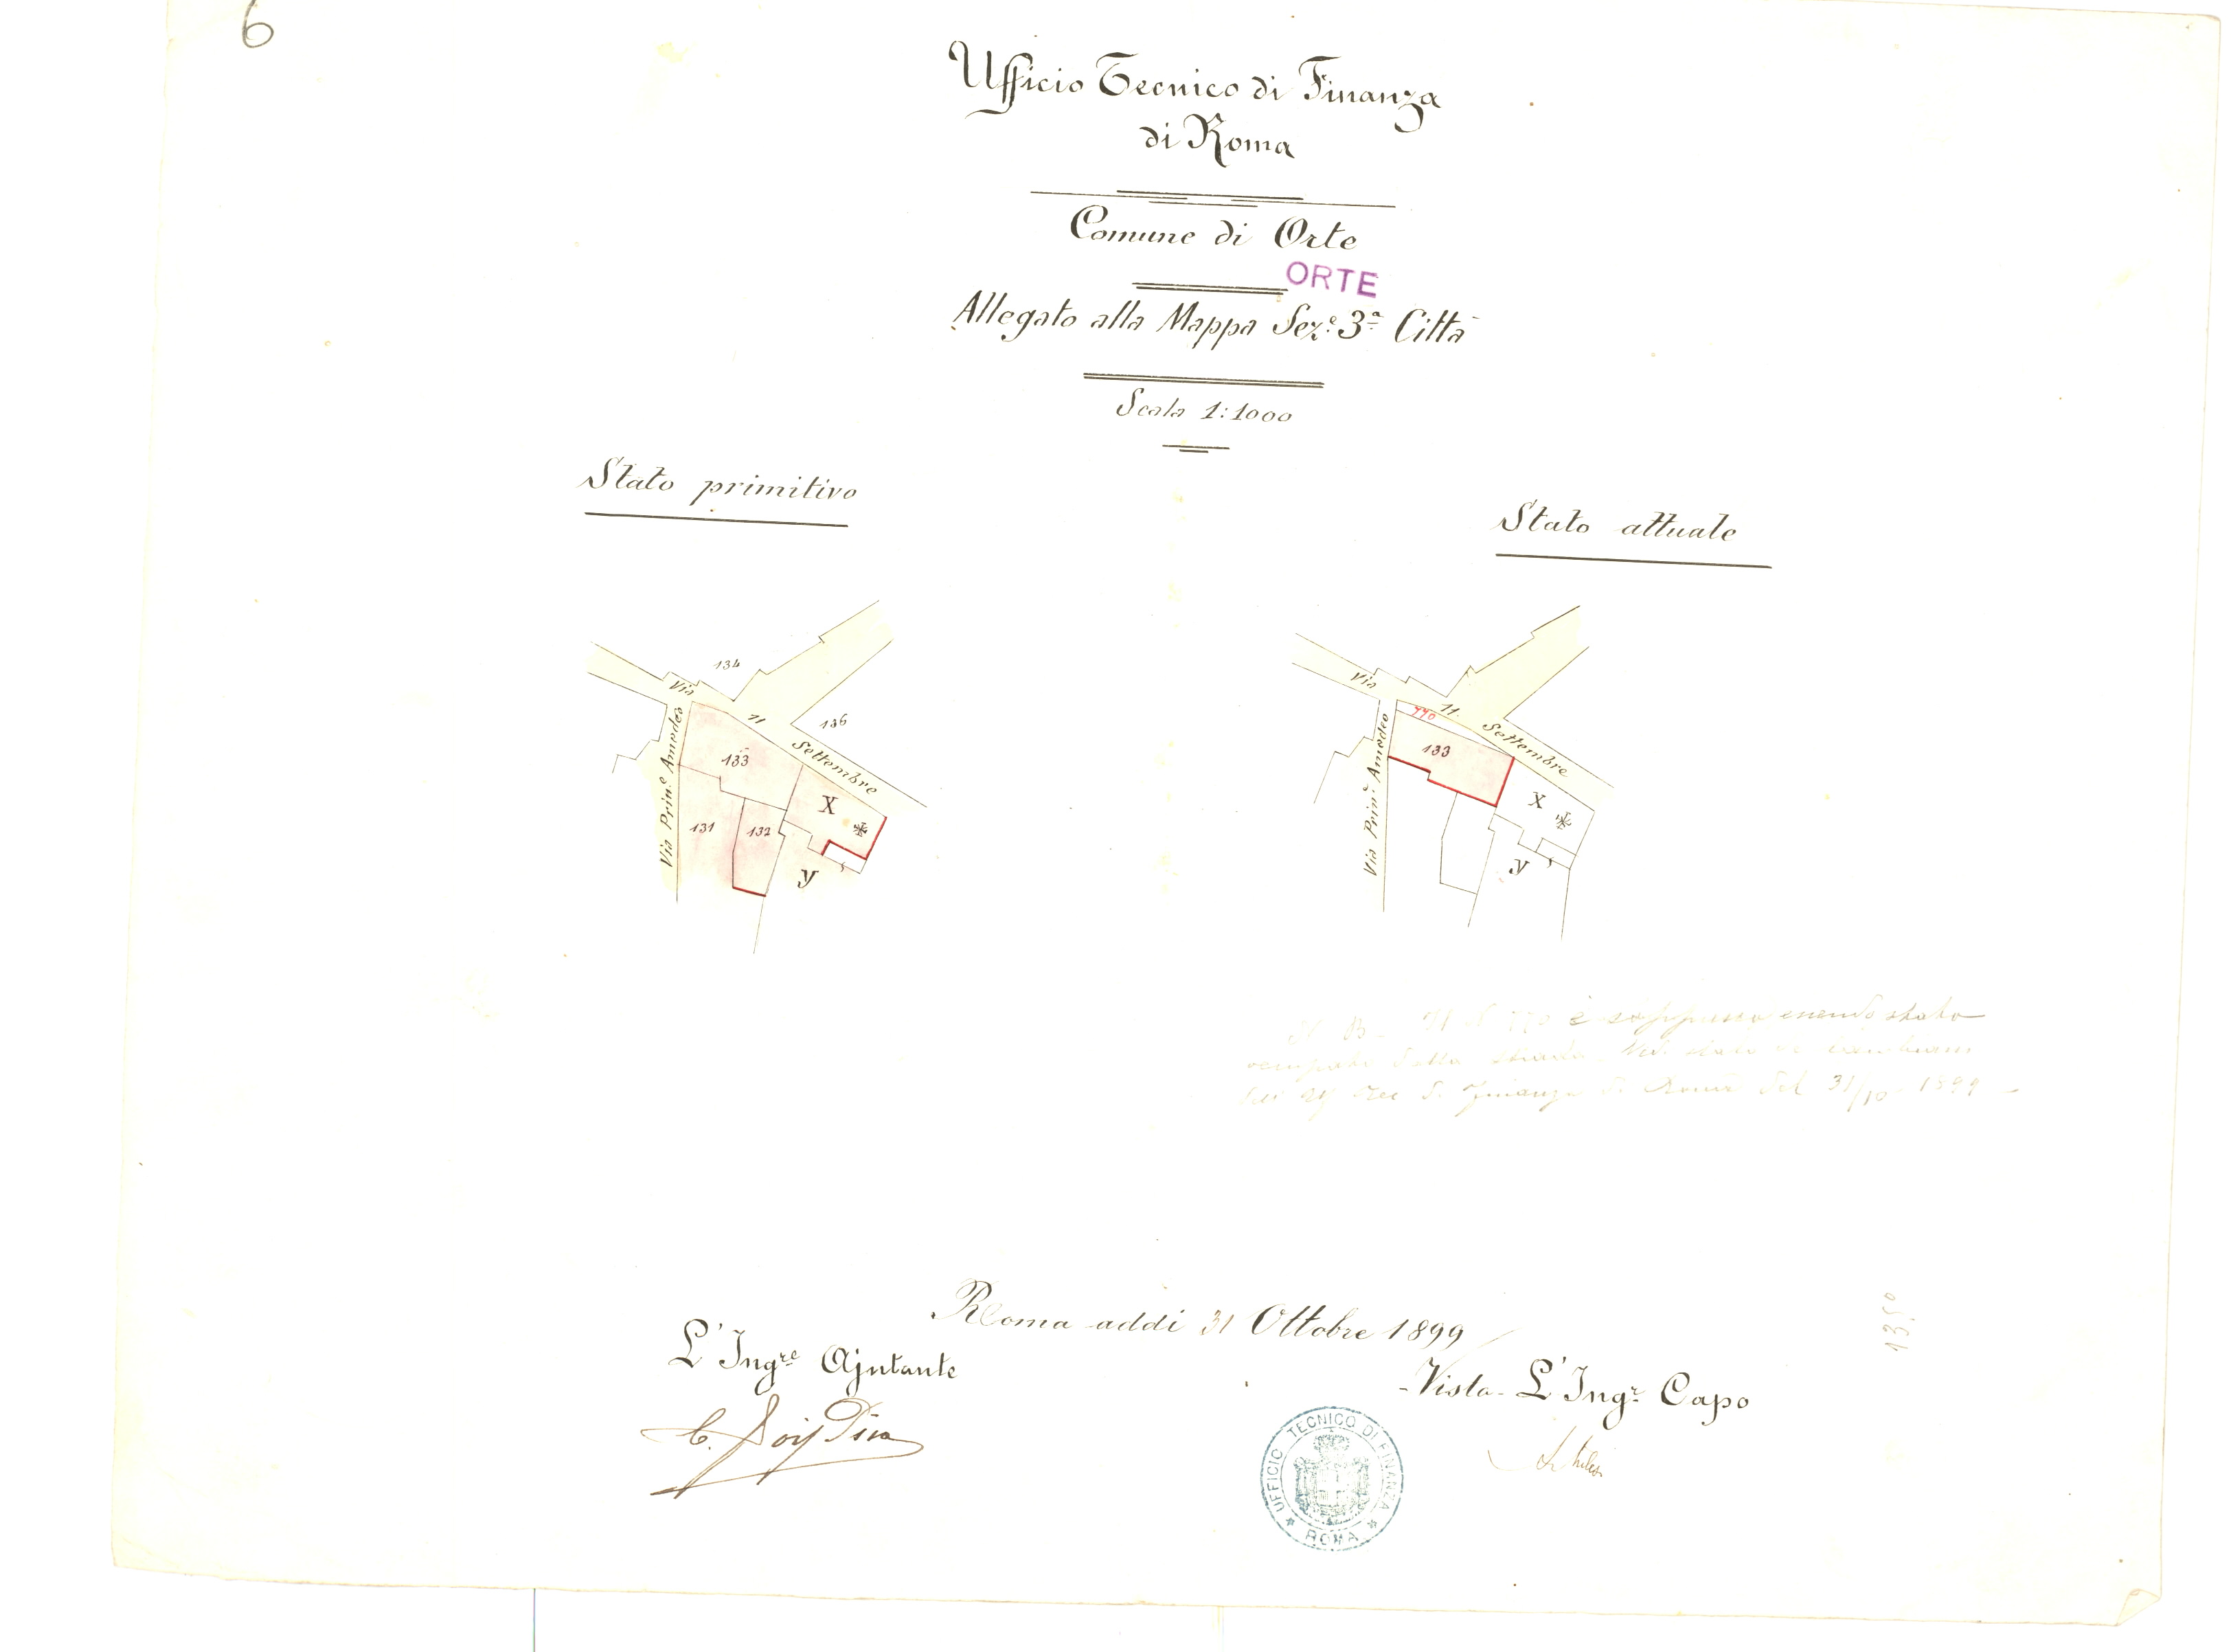 6
Ufficio Tecnico di Finanza
di Roma
Comune di Orte
ORTE
Allegato alla Mappa Sez.e 3a Città
Scala 1:1000
Stato primitivo
Stato attuale
134
Via
11
136
Settembre
133
Via Prin.e Amedeo
131
132
X
y
Via
770
11
Settembre
133
Via Prin.e Amedeo
X
y
N B. Il N 770 è soppresso essendo stato
occupato dalla strada
di Finanza di Roma del 31/10 1899
Roma addi 31 Ottobre 1899
L'Ingre Ajutante
Visto L'Ingr Capo
C.
UFFICIO TECNICO DI FINANZA
ROMA